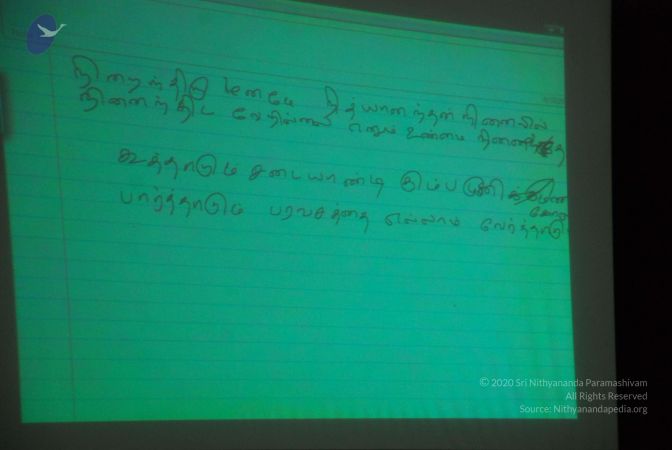 நிறைந்திடு மனமே நித்யானந்தன் நினைவில்
நினைந்திட வேறில்லை எனும் உண்மை
கூத்தாடும் சடையாண்டி
பார்த்தாடும் பரவசத்தை எல்லாம்
© 2020 Sri Nithyananda Paramashivam
All Rights Reserved
Source: Nithyanandapedia.org